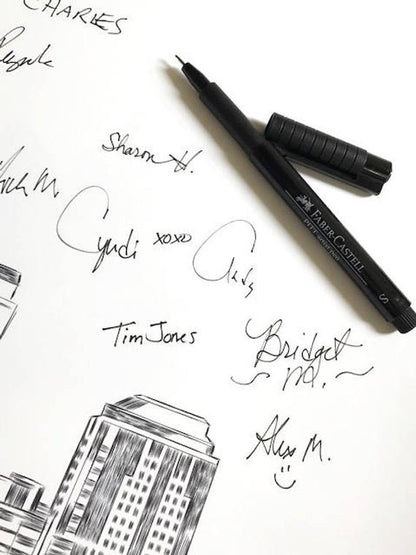 CHARLES
Sharon H.
Cyndi xoxo
Andy
Tim Jones
Bridget
M.
Alyss M.
FABER-CASTELL
PITT artist pen
S